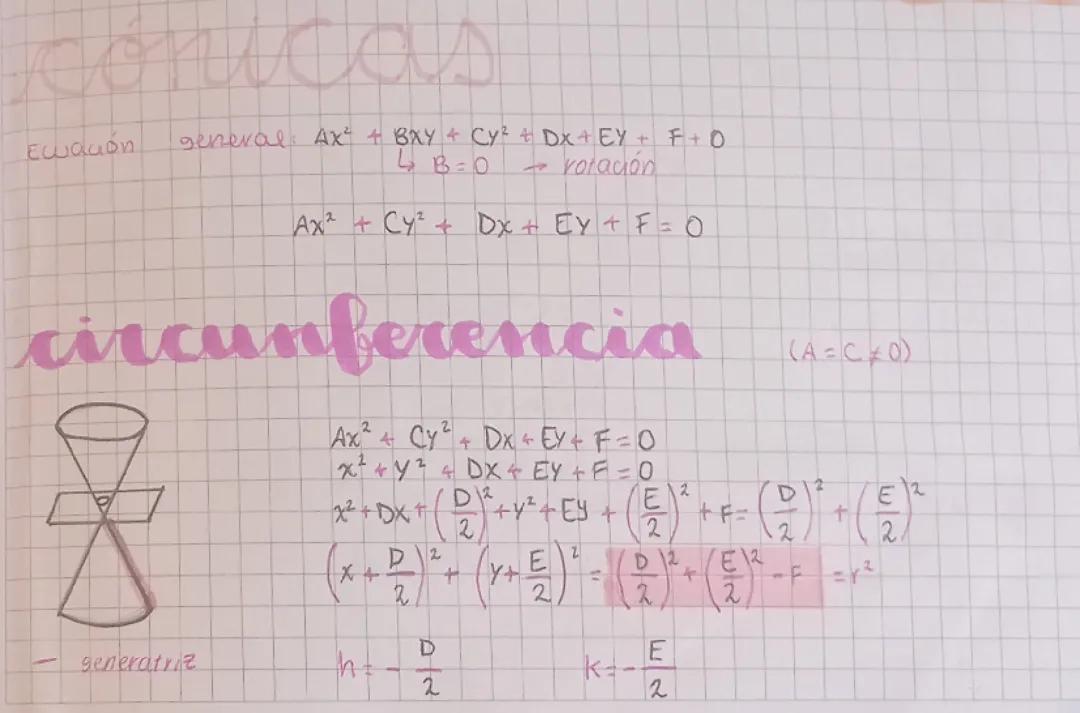 cónicas
Ecuación general: Ax² + BXY + Cy² + Dx + EY + F + 0
↳ B = 0 → rotación
Ax² + Cy² + Dx + EY + F = 0
circunferencia (A = C ≠ 0)
Ax² + Cy² + Dx + EY + F = 0
x² + y² + DX + EY + F = 0
x² + DX + (D/2)² + y² + EY + (E/2)² + F = (D/2)² + (E/2)²
(x + D/2)² + (y + E/2)² = (D/2)² + (E/2)² - F = r²
— generatriz h = - D/2 k = - E/2